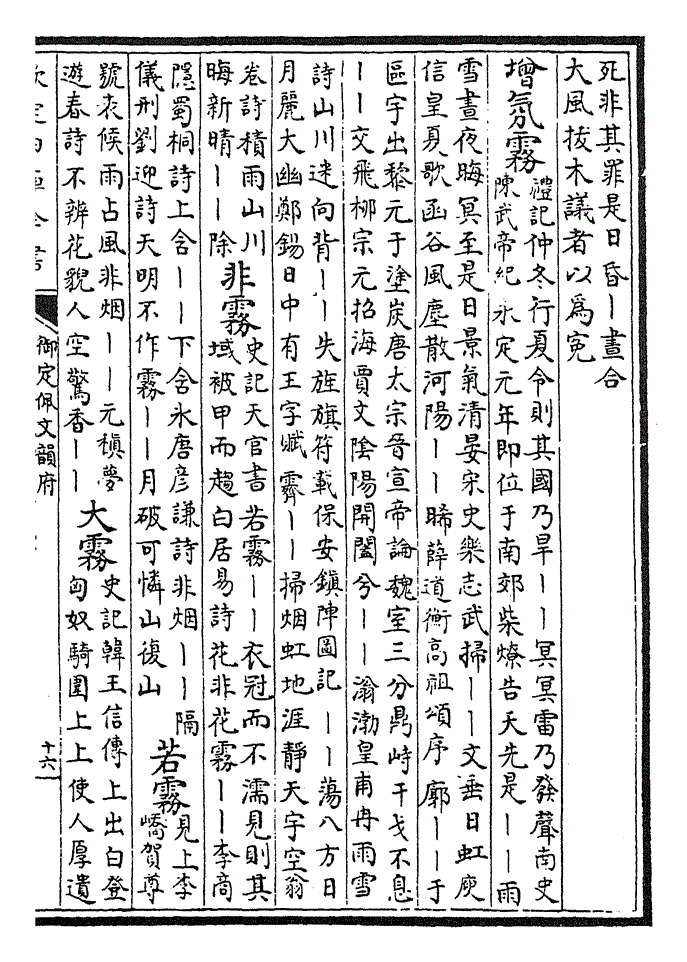 死非其罪是日昏丨晝合
大風拔木議者以爲寃
增氛霧
禮記仲冬行夏令則其國乃旱丨丨冥冥雷乃發聲南史
陳武帝紀永定元年即位于南郊柴燎告天先是丨丨雨
雪晝夜晦冥至是日景氣清晏宋史樂志武掃丨丨文垂日虹庾
信皇夏歌函谷風塵散河陽丨丨晞薛道衡高祖頌序廓丨丨于
區宇出黎元于塗炭唐太宗晉宣帝論魏室三分鼎峙干戈不息
丨丨交飛柳宗元招海賈文陰陽開闔兮丨丨滃渤皇甫冉雨雪
詩山川迷向背丨丨失旌旗符載保安鎮陣圖記丨丨蕩八方日
月麗大幽鄭錫日中有王字賦霽丨丨掃烟虹地涯靜天宇空翁
卷詩積雨山川
晦新晴丨丨除
非霧
史記天官書若霧丨丨衣冠而不濡見則其
域被甲而趨白居易詩花非花霧丨丨李商
隱蜀桐詩上含丨丨下含氷唐彦謙詩非烟丨丨隔
儀刑劉迎詩天明不作霧丨丨月破可憐山復山
若霧
見上李
嶠賀尊
號表候雨占風非烟丨丨元稹夢
遊春詩不辨花貌人空驚香丨丨
大霧
史記韓王信傳上出白登
匈奴騎圍上上使人厚遺
欽定四庫全書
御定佩文韻府
十六